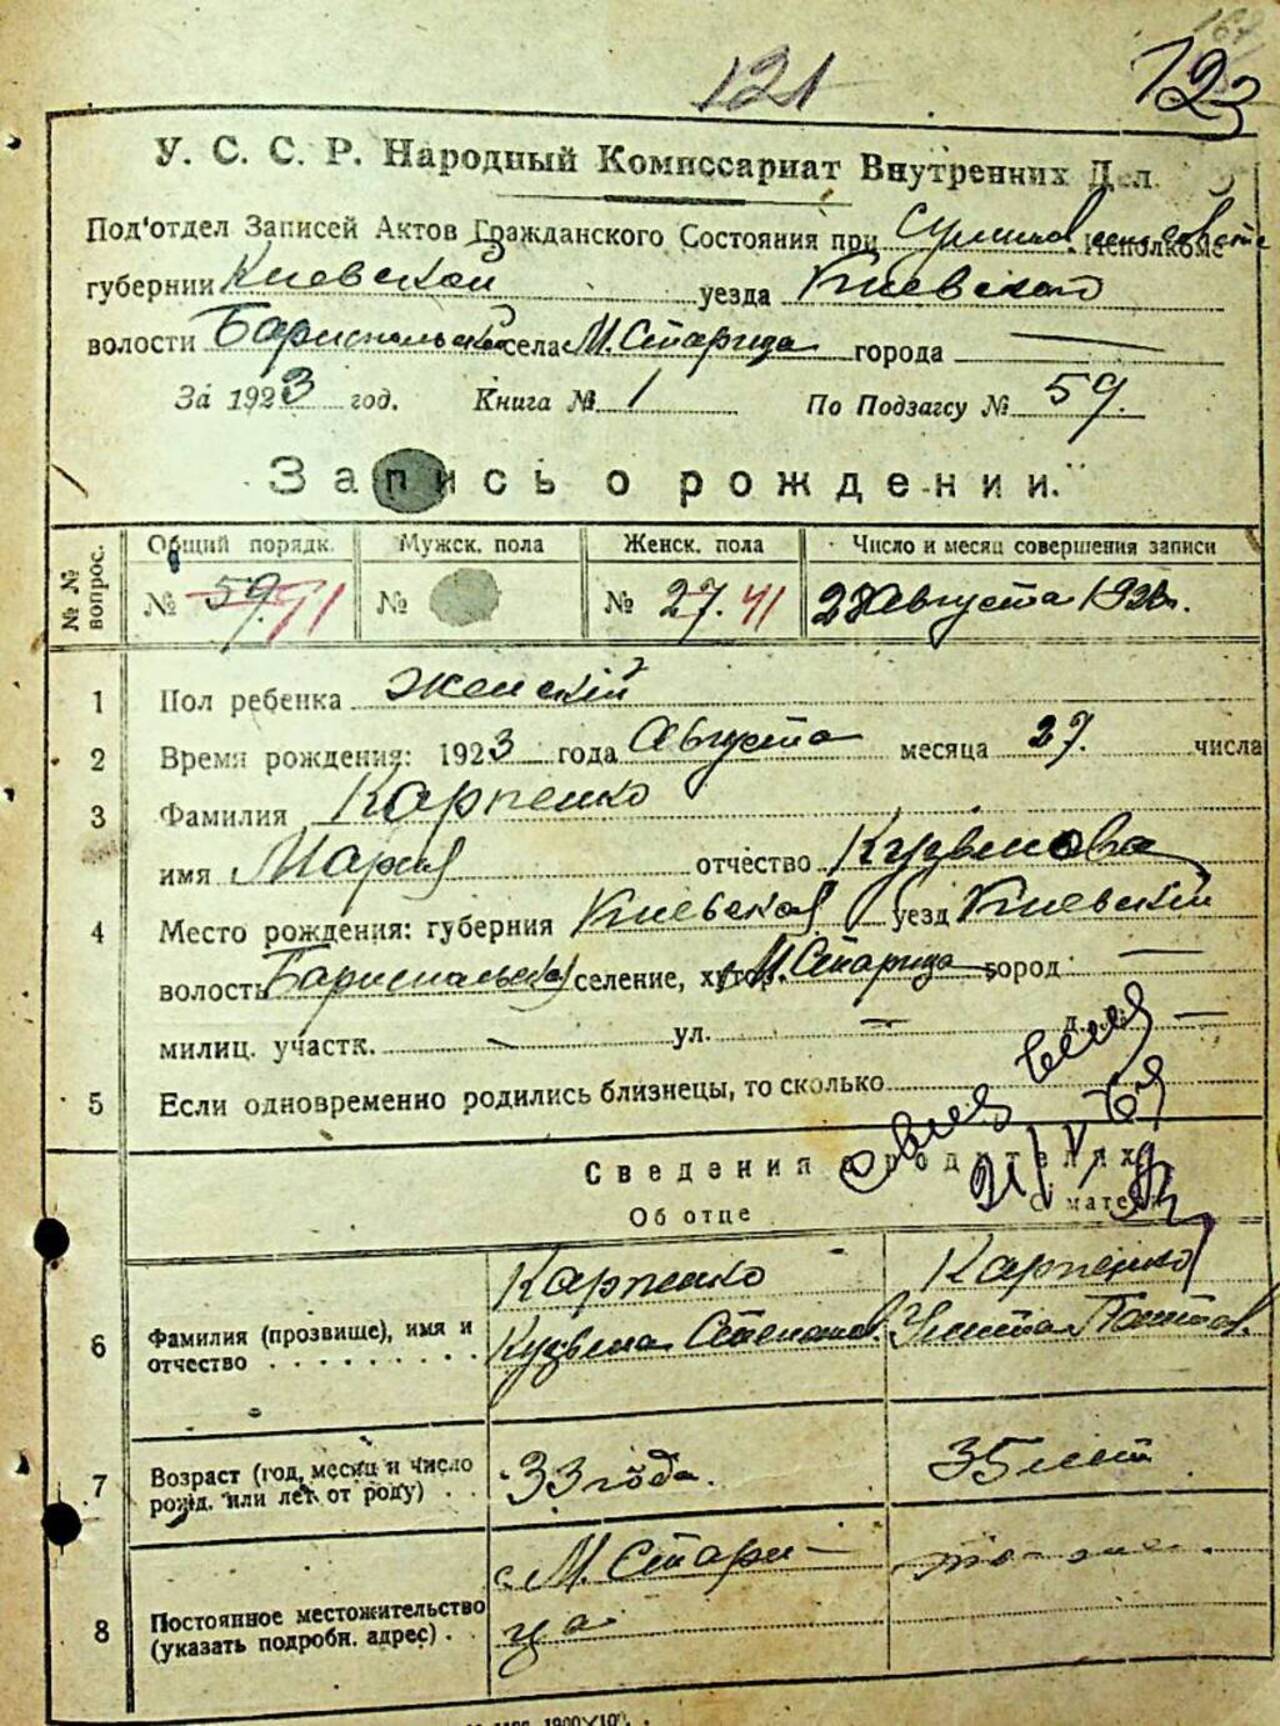 121
123
У. С. С. Р. Народный Комиссариат Внутренних Дел.
Под'отдел Записей Актов Гражданского Состояния при Исполкоме
губернии Киевской уезда Киевского
волости Бариспольской села М. Старица города —
За 1923 год. Книга № 1 По Подзагсу № 59.
Запись о рождении.
№№ вопрос.
Общий порядк. Мужск. пола Женск. пола Число и месяц совершения записи
№ 59. 71 № № 27. 41 Августа
1 Пол ребенка женскій
2 Время рождения: 1923 года Августа месяца 27. числа
3 Фамилия Карпенко
имя Мария отчество Кузьмова
4 Место рождения: губерния Киевская уезд Киевскій
волость Бариспольская селение, хутор. М. Старица город —
милиц. участк. — ул. — д. —
5 Если одновременно родились близнецы, то сколько
Сведения о родителях
Об отце О матери
Карпенко Карпенко
6 Фамилия (прозвище), имя и отчество Кузьма Степанов.
7 Возраст (год, месяц и число рожд. или лет от роду) 33 года. 35 лет
8 Постоянное местожительство (указать подробн. адрес) с. М. Стари- то-же.
ца